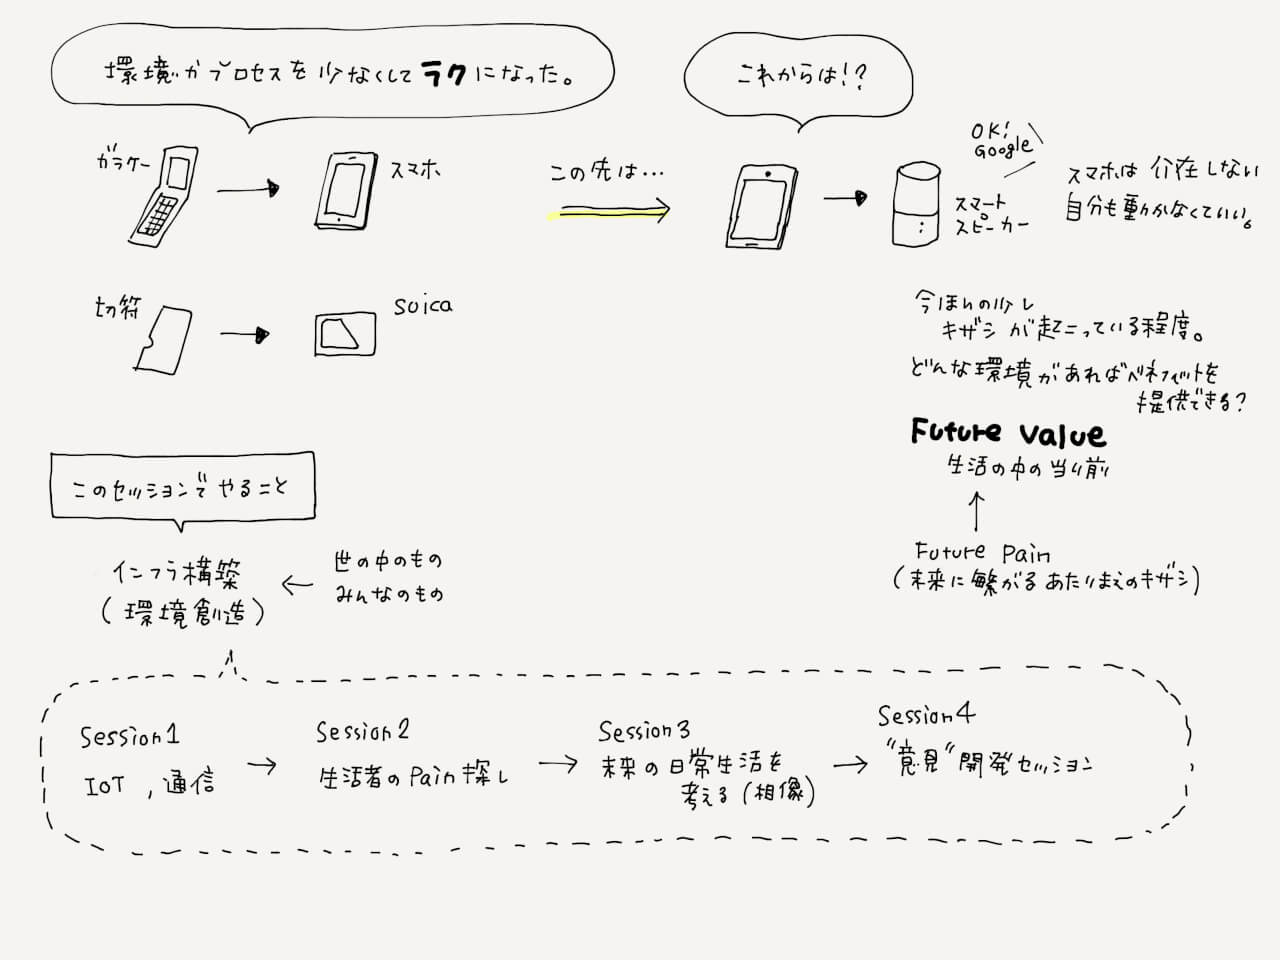 環境がプロセスを少なくしてラクになった。
これからは!?
ガラケー
スマホ
この先は…
OK!
Google
スマート
スピーカー
スマホは介在しない
自分も動かなくていい。
切符
Suica
今ほんの少し
キザシが起こっている程度。
どんな環境があればベネフィットを
提供できる?
Future Value
生活の中の当り前
Future Pain
(未来に繋がるあたりまえのキザシ)
このセッションでやること
インフラ構築
(環境創造)
世の中のもの
みんなのもの
Session1
IoT,通信
Session2
生活者のPain探し
Session3
未来の日常生活を
考える(相像)
Session4
"意見"開発セッション